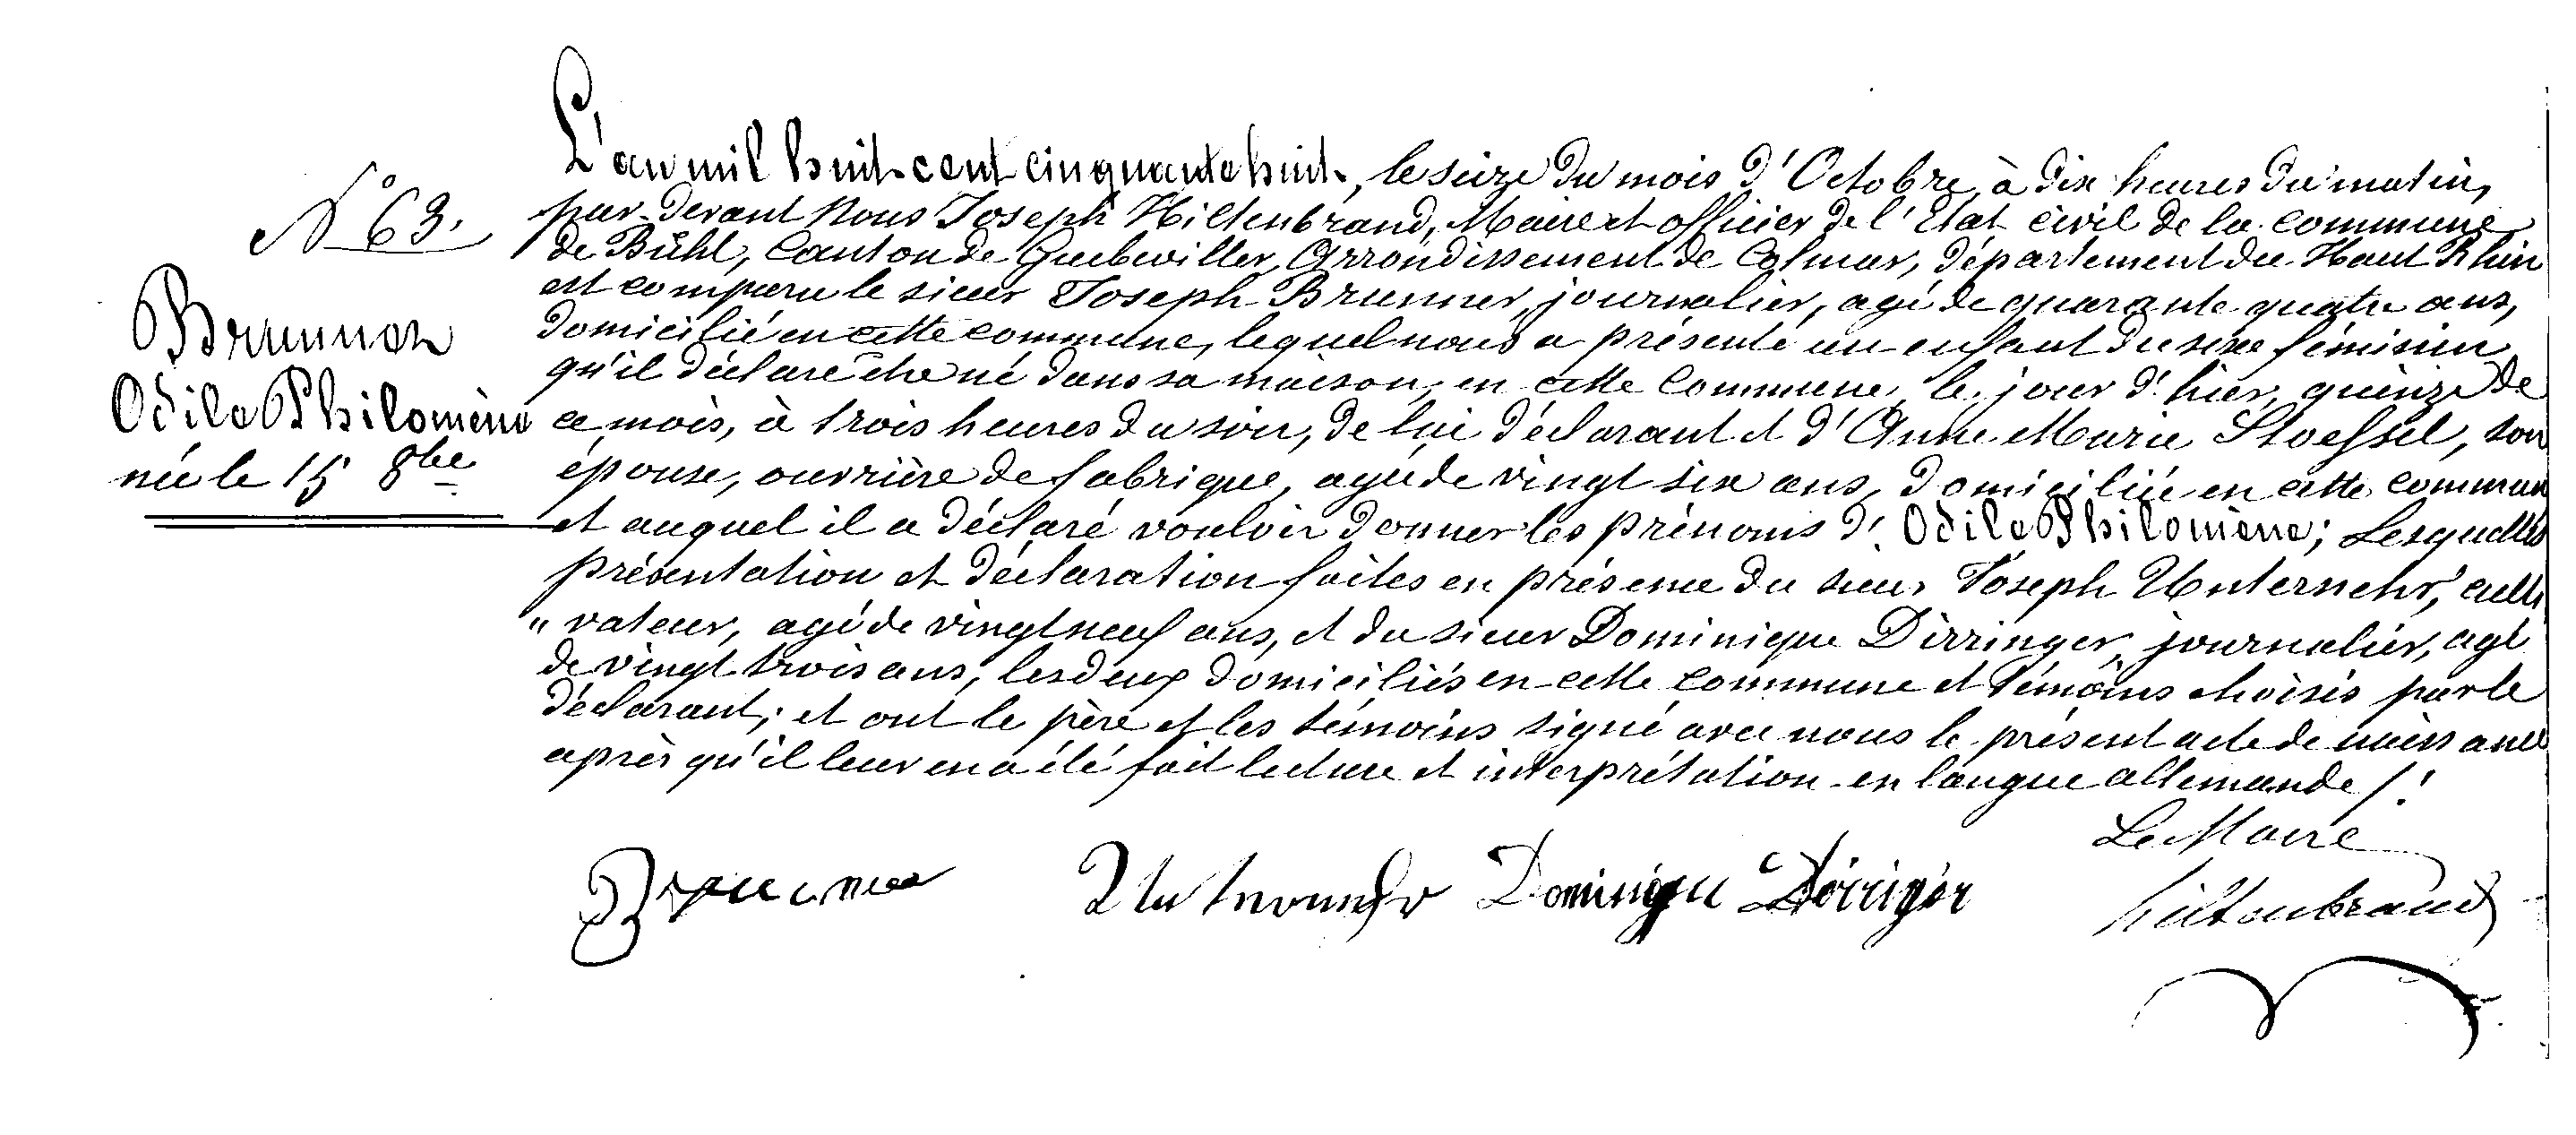 N° 63.
Brunner
Odile Philomène
née le 15 8bre
L'an mil huit cent cinquante huit, le seize du mois d'Octobre, à dix heures du matin,
par-devant Nous Joseph Hiltenbrand, Maire et officier de l'Etat civil de la commune
de Bühl, Canton de Guebwiller, Arrondissement de Colmar, département du Haut Rhin
est comparu le sieur Joseph Brunner, journalier, agé de quarante quatre ans,
domicilié en cette commune, lequel nous a présenté un enfant du sexe féminin
qu'il déclare être né dans sa maison, en cette Commune, le jour d'hier, quinze de
ce mois, à trois heures du soir, de lui déclarant et d'Anne Marie Stoessel, son
épouse, ouvrière de fabrique, agée de vingt six ans, domiciliée en cette commune
et auquel il a déclaré vouloir donner les prénoms d'Odile Philomène; Lesquelles
présentation et déclaration faites en présence du sieur Joseph Unternehr, culti
" vateur, agé de vingt neuf ans, et du sieur Dominique Dirringer, journalier, agé
de vingt trois ans, les deux domiciliés en cette commune et témoins choisis par le
déclarant; et ont le père et les témoins signé avec nous le présent acte de naissance
après qu'il leur en a été fait lecture et interprétation en langue allemande /.
Le Maire
Brunner Unternehr Dominique Dirringer Hiltenbrand